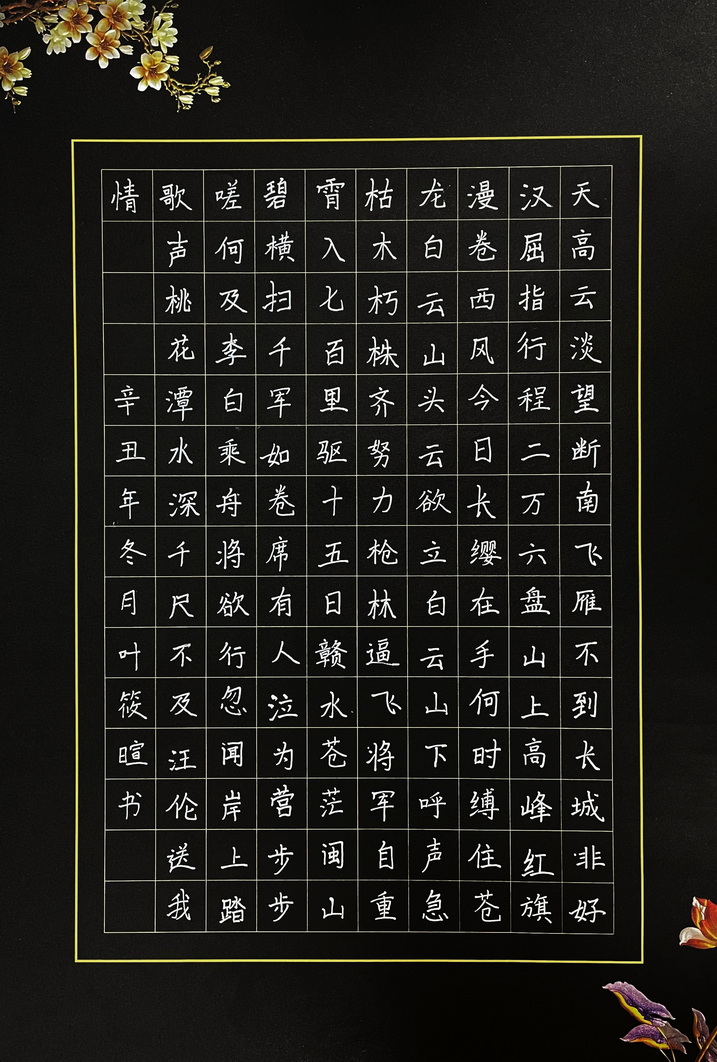 天高云淡望断南飞雁不到长城非好
汉屈指行程二万六盘山上高峰红旗
漫卷西风今日长缨在手何时缚住苍
龙白云山头云欲立白云山下呼声急
枯木朽株齐努力枪林逼飞将军自重
霄入七百里驱十五日赣水苍茫闽山
碧横扫千军如卷席有人泣为营步步
嗟何及李白乘舟将欲行忽闻岸上踏
歌声桃花潭水深千尺不及汪伦送我
情 辛丑年冬月叶筱暄书